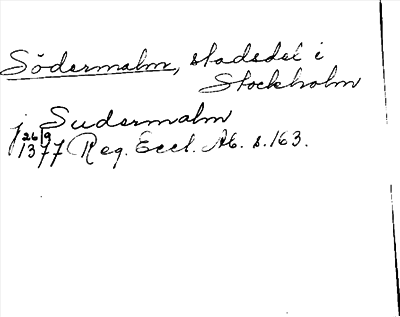 Södermalm, stadsdel i
Stockholm
j Sudermalm
26/9
1377 Reg. Eccl. Ab. s. 163.